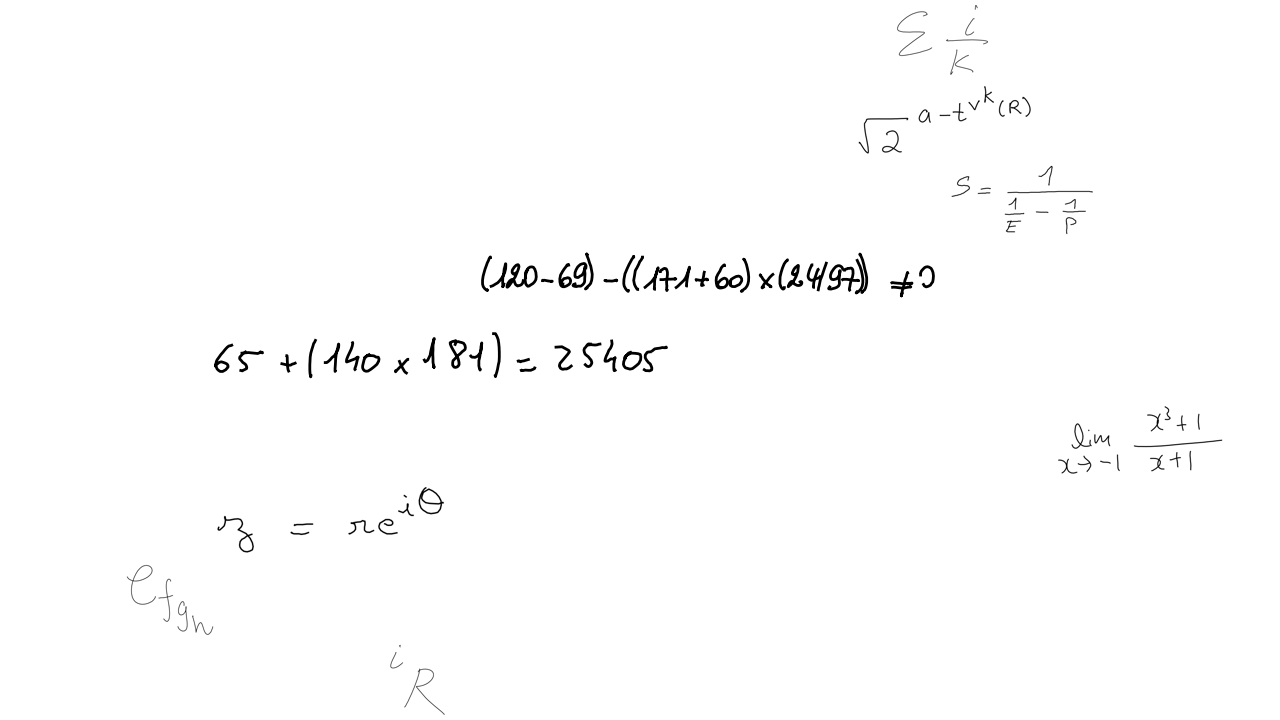 ∑ i/k
√2^(a-t^(v^k)(R))
S = 1/(1/E - 1/P)
(120-69)-((171+60)×(24/97)) ≠0
65+(140×181)=25405
lim x→-1 (x³+1)/(x+1)
z = re^(iθ)
e_(f_(g_h))
ⁱR